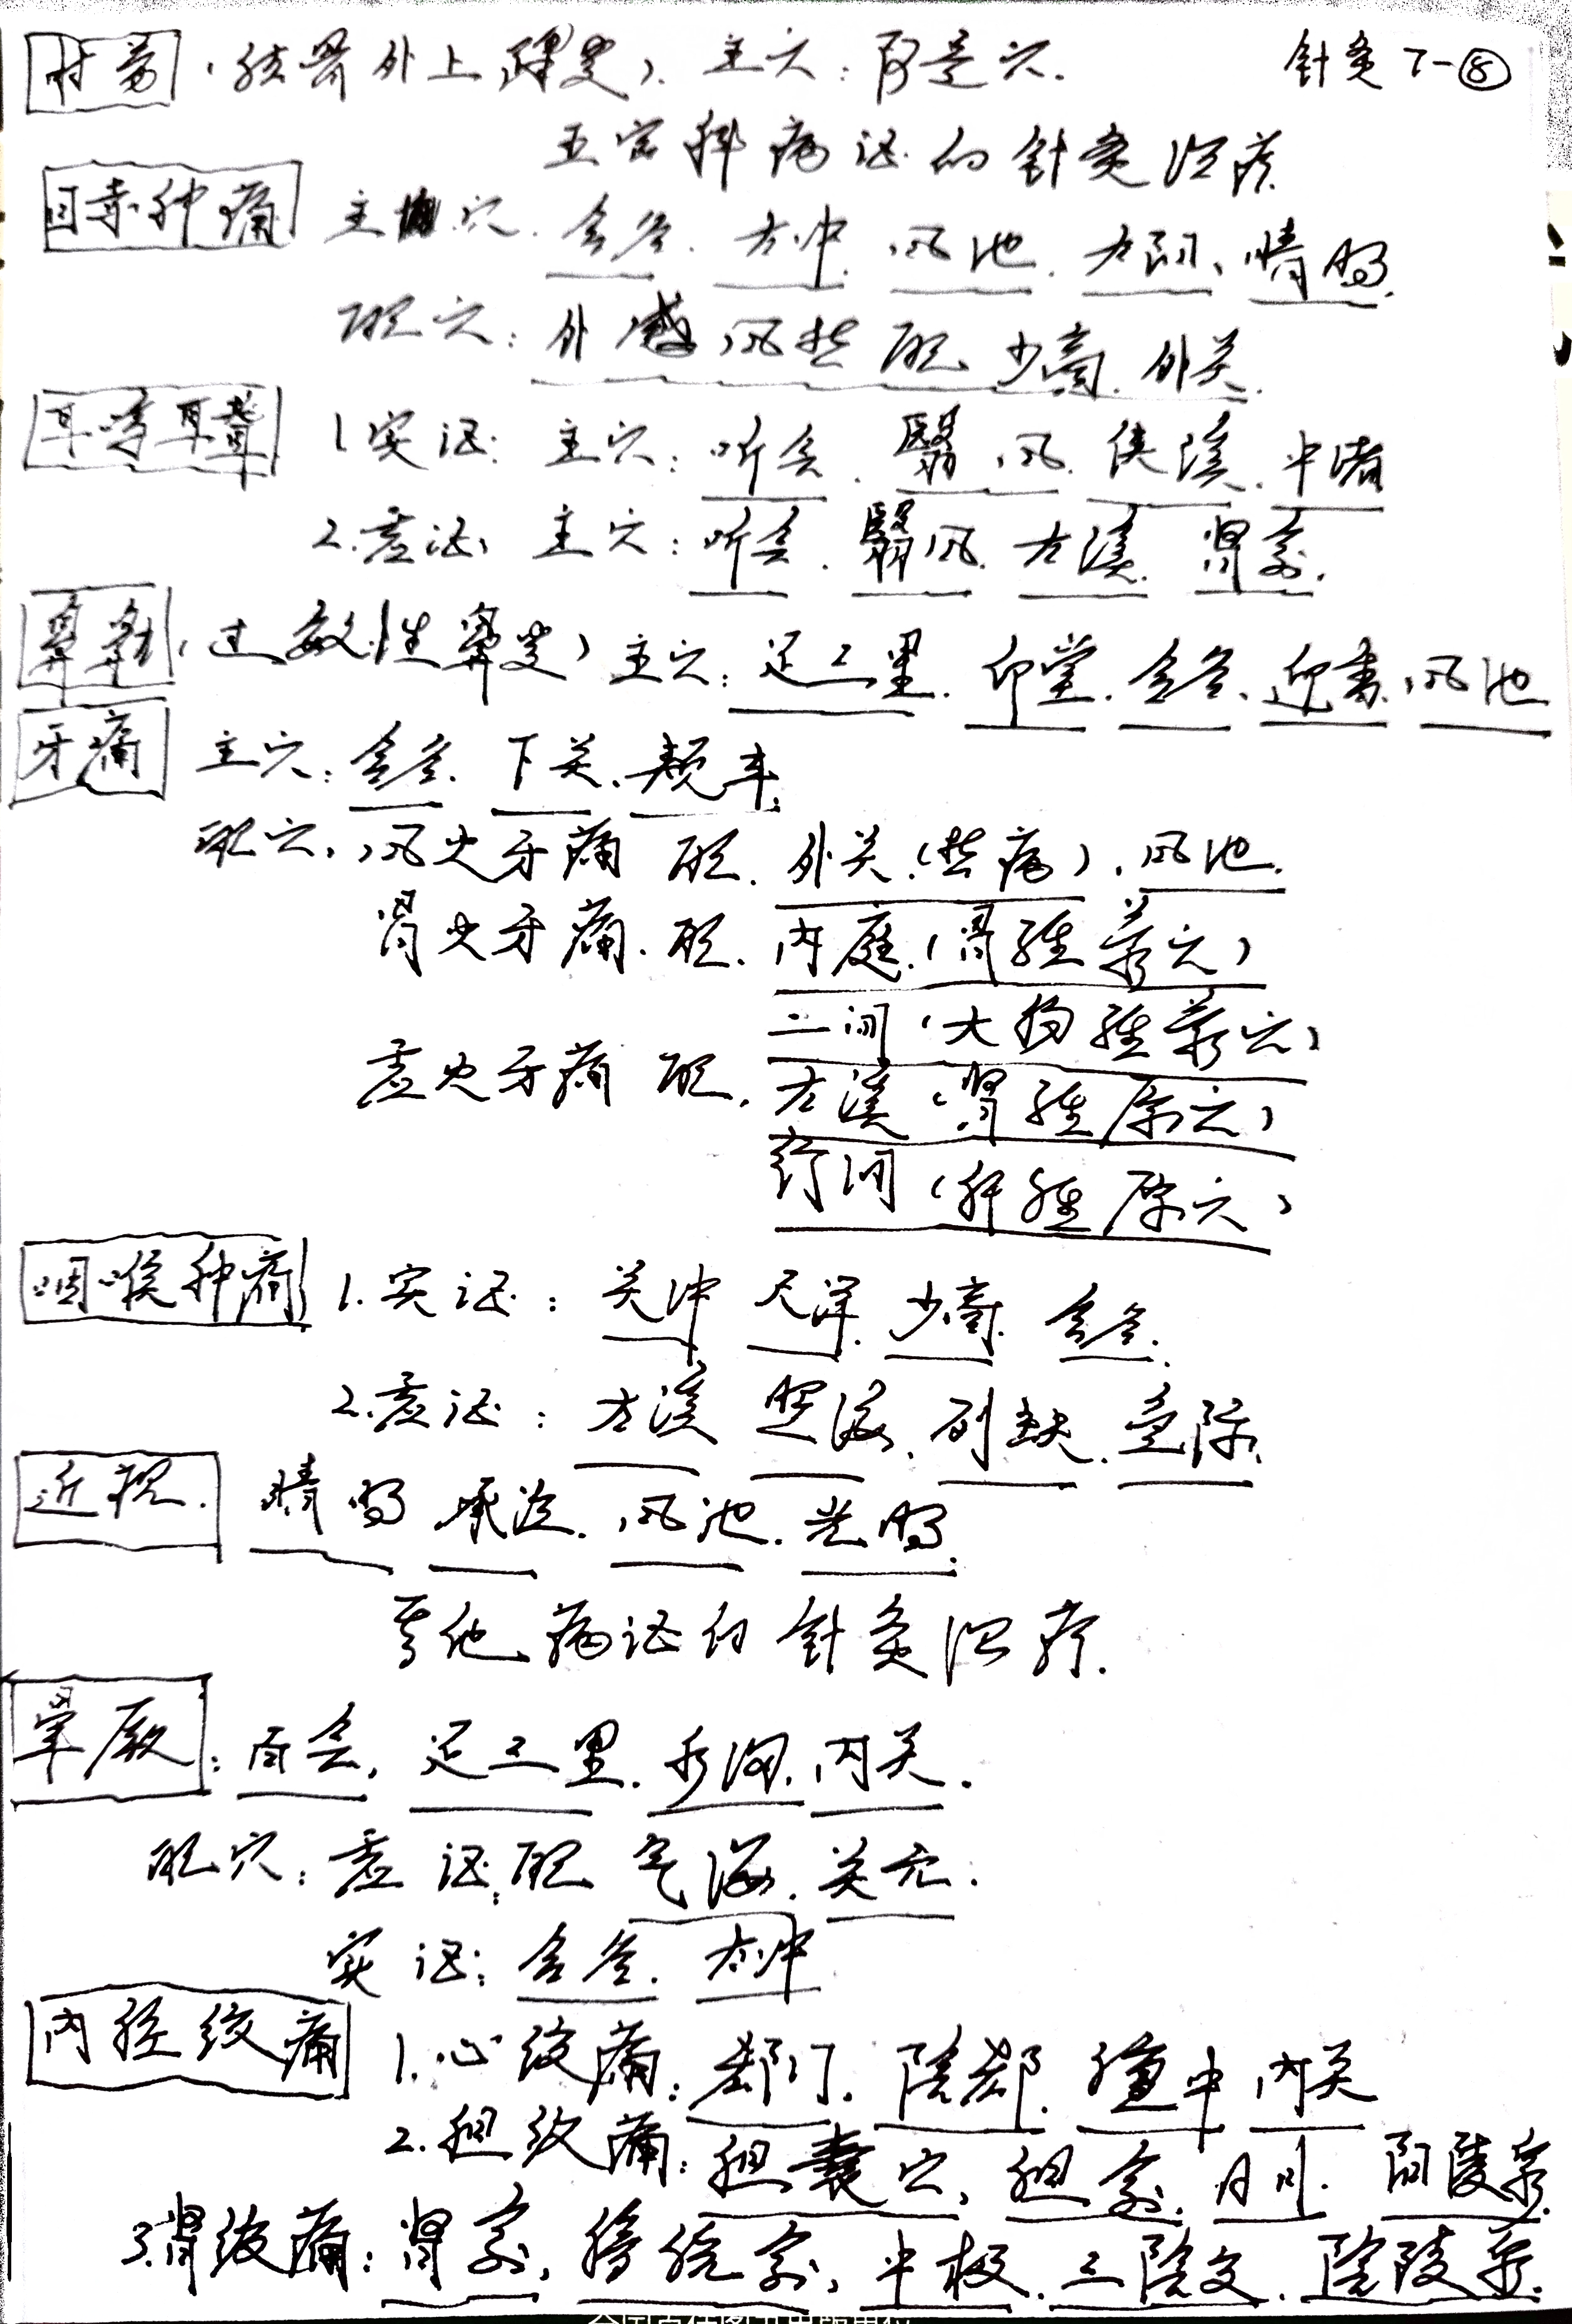 肘劳（肱骨外上髁炎）. 主穴：阿是穴. 针灸 7-⑧
五官科病证的针灸治疗
目赤肿痛 主穴. 合谷. 太冲. 风池. 太阳、睛明.
配穴：外感风热配 少商. 外关.
耳鸣耳聋 1.实证. 主穴：听会. 翳风. 侠溪. 中渚
2.虚证, 主穴：听会. 翳风. 太溪. 肾俞.
鼻鼽（过敏性鼻炎）主穴：足三里. 印堂. 合谷、迎香. 风池
牙痛 主穴：合谷. 下关. 颊车.
配穴：风火牙痛 配. 外关（热病）. 风池.
胃火牙痛. 配. 内庭.（胃经荥穴）
二间（大肠经荥穴）
虚火牙痛 配. 太溪（肾经原穴）
行间（肝经原穴）
咽喉肿痛 1.实证：关冲 尺泽. 少商. 合谷.
2.虚证：太溪 照海. 列缺. 鱼际.
近视. 睛明 承泣. 风池. 光明.
其他病证的针灸治疗.
晕厥：百会, 足三里. 水沟. 内关.
配穴：虚证. 配 气海. 关元.
实证：合谷. 太冲
内脏绞痛 1.心绞痛：郄门. 阴郄. 膻中 内关
2.胆绞痛：胆囊穴, 胆俞. 日月. 阳陵泉.
3.肾绞痛：肾俞, 膀胱俞, 中极. 三阴交. 阴陵泉.